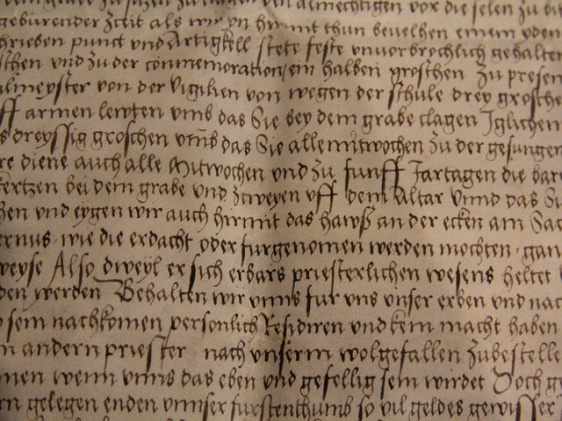 almechtigen vor die selen zu
geburender Zceit als wir yn hirmit thun bevelhen einem yden
schrieben punct und Artigkell stete feste unvorbrochlich gehalten
schen und zu der commemoration ein halben groschen zu presen
ulmeyster von der Vigilien von wegen der schule drey grosche
uff armen lewten vnns das Sie bey dem grabe clagen Iglichem
s dreyssig groschen vnns das Sie alle mitwochen zu der gesungen
re diene auch alle Mitwochen und zu funff Jartagen die bar
kertzen bei dem grabe und Zcweyen uff dem Altar vnnd das Si
hen und eygen wir auch hirmit das hawß an der ecken am Sac
ernus wie die erdacht oder furgenomen werden mochten gan
weyse Also dweyl er sich erbars priesterlichen wesens heltet
den werden Behalten wir vnns fur vns vnser erben und nac
o sein nachkomen personlich Residiren und kein macht haben
n andern priester nach vnserm wolgefallen zubestelle
men wenn vnns das eben und gefellig sein wirdet Doch ge
rn gelegen enden vnnser furstenthumb so vil geldes gewisser